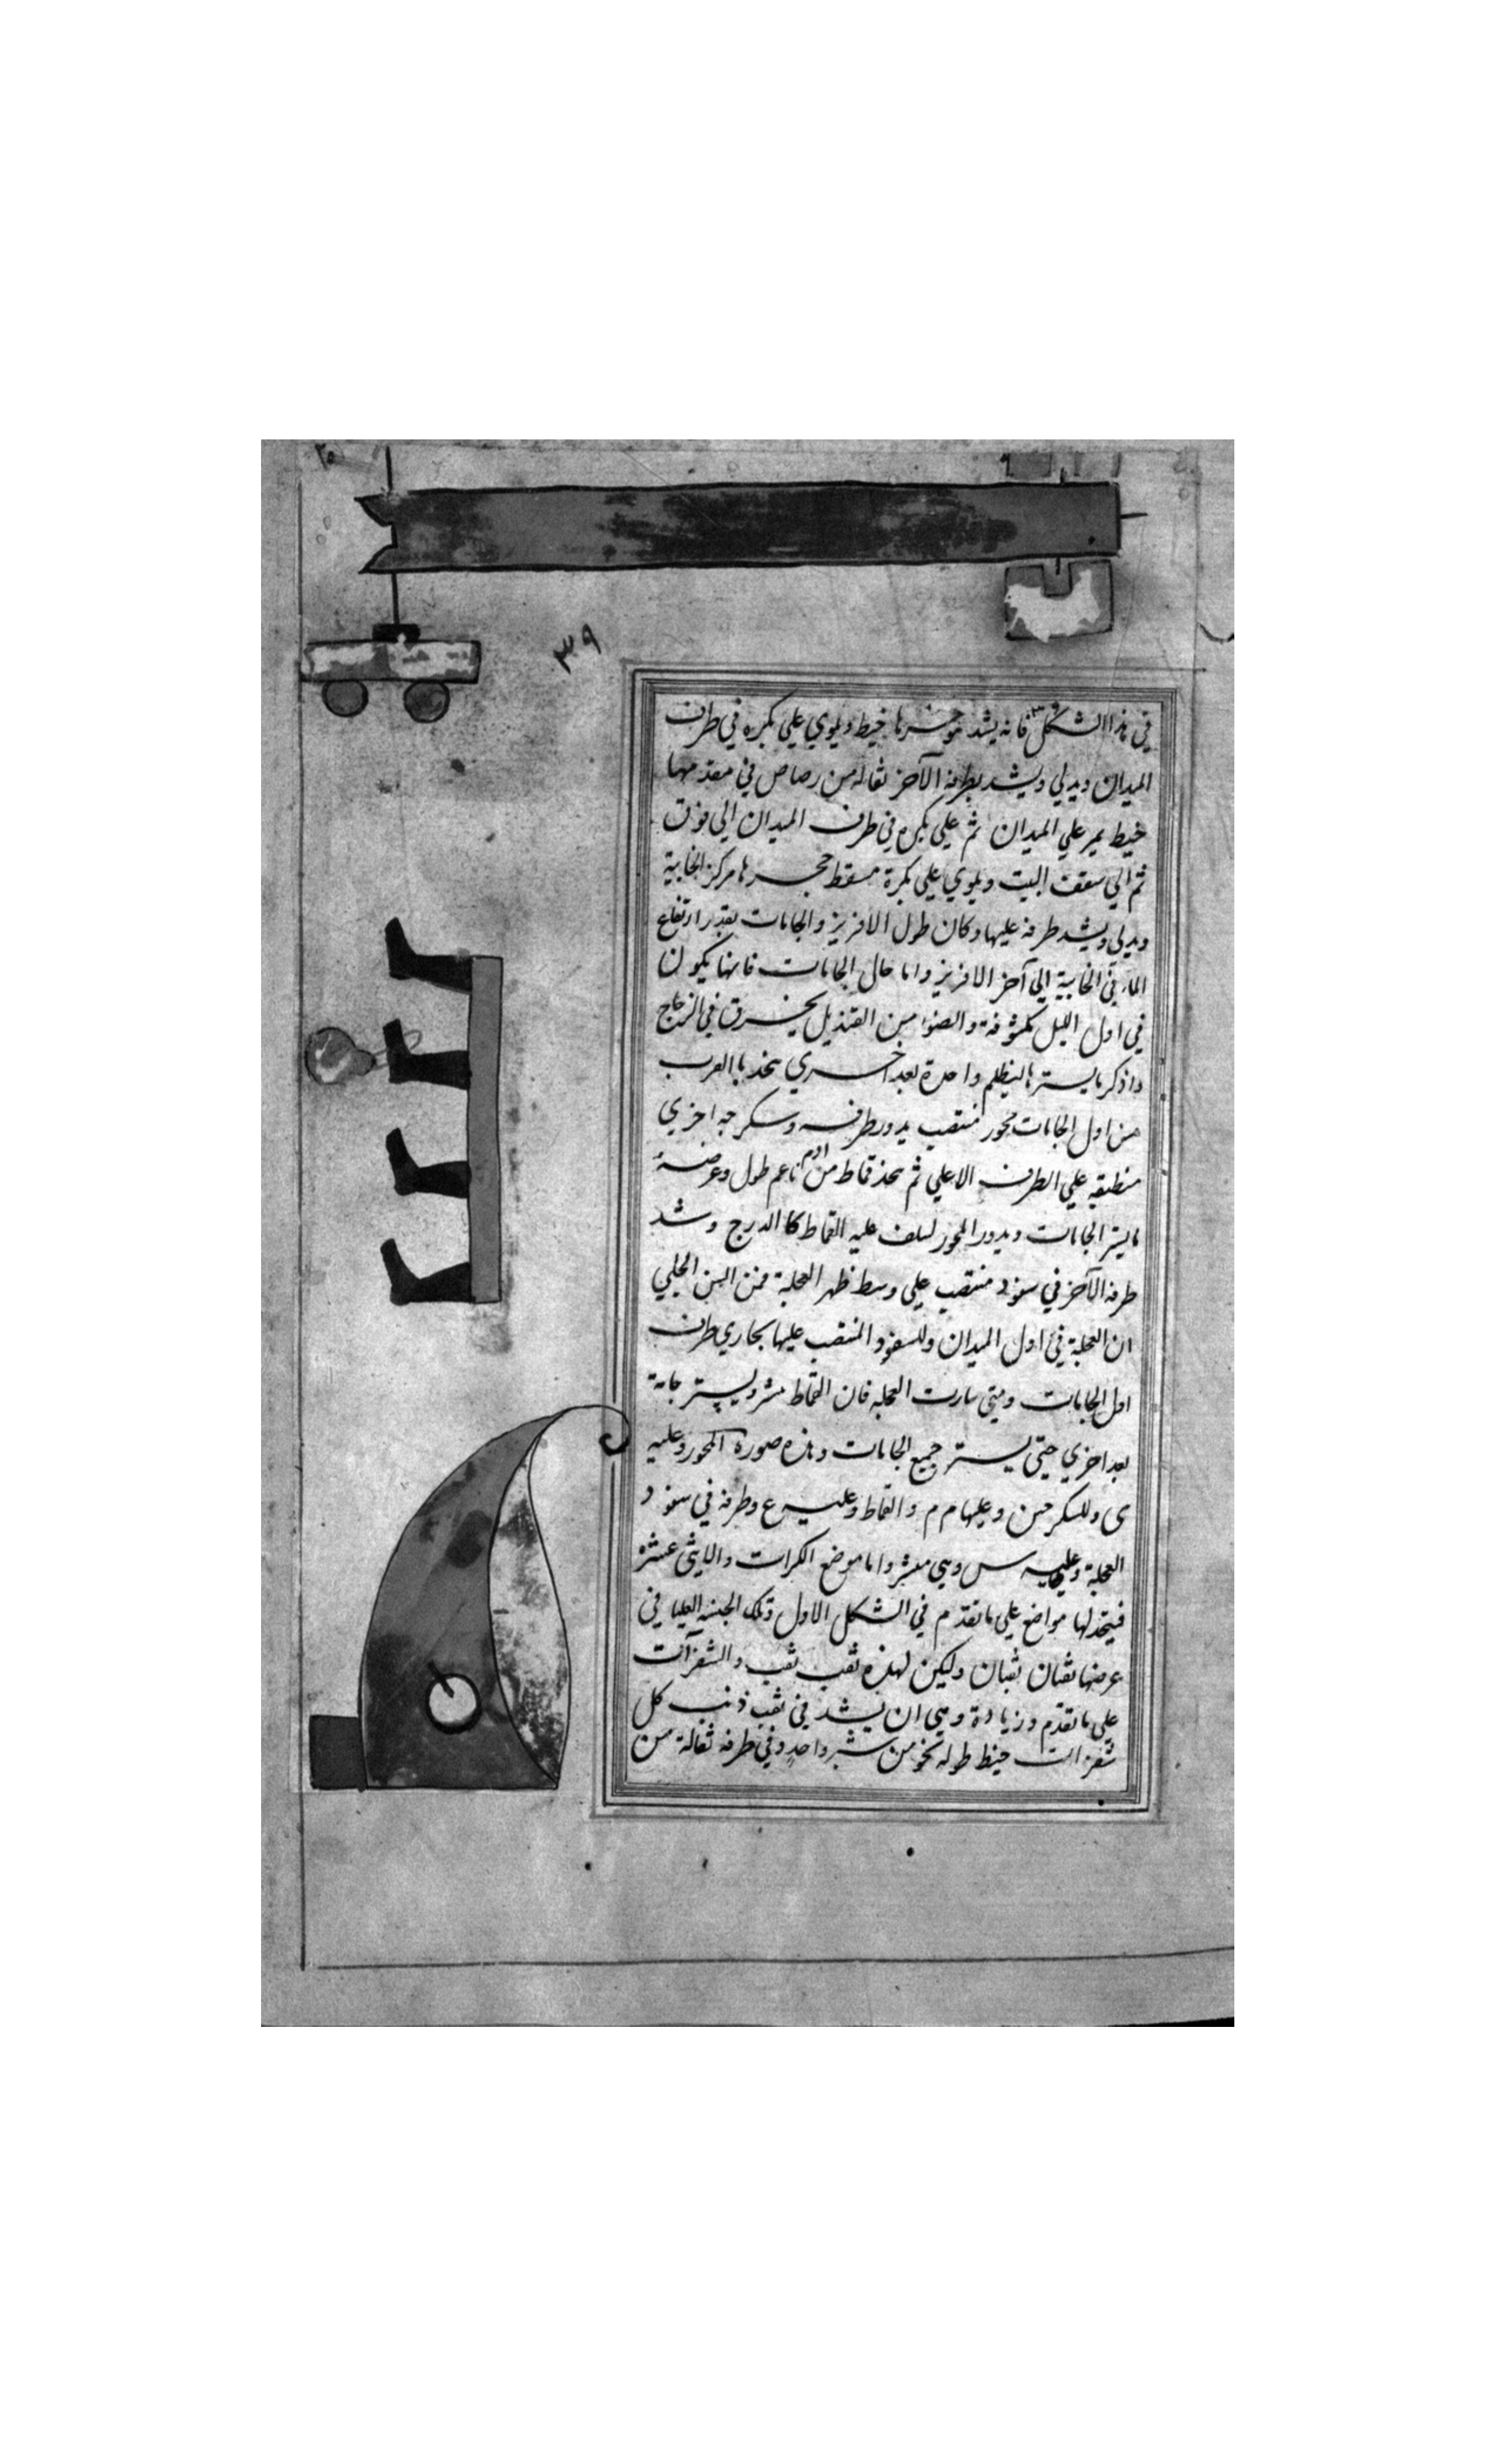 ٢٠
٣٩
في هذا الشكل فانه يشد بموخرها خيط ويلوي علي بكره في طرف
الميدان ويدلي ويشد بطرفه الآخر ثقاله من رصاص في مقدمها
خيط يمر علي الميدان ثم علي بكره في طرف الميدان الي فوق
ثم الي سقف البيت ويلوي علي بكرة مسقط حجرها مركز الخابية
ويدلي ويشد طرفه عليها وكان طول الافريز والجامات بقدر ارتفاع
الماء في الخابية الي آخر الافريز واما حال الجامات فانها يكون
في اول الليل مكشوفة والضوا من القنديل يخرق في الزجاج
واذكر ما يسترها ليظلم واحدة بعد اخري يتخذ بالقرب
من اول الجامات محور منتصب يدور طرفه وسكرجه اخري
منطبقه علي الطرف الاعلي ثم يتخذ قماط من ادم ناعم طول وعرضه
ما يستر الجامات ويدور المحور ليلف عليه القماط كالدرج وشد
طرفه الآخر في سفود منتصب علي وسط ظهر العجلة فمن البين الجلي
ان العجلة في اول الميدان وللسفود المنتصب عليها يحاري طرف
اول الجامات ومتي سارت العجله فان القماط ينشر ويستر جامة
بعد اخري حتي يستر جميع الجامات وهذه صورة المحور وعليه
ى وللسكرجتين وعليها م م والقماط وعليه ع وطرفه في سفود
العجلة وعليه س وهي منشر واما موضع الكرات والاثني عشره
فيتخذ لها مواضع علي ما تقدم في الشكل الاول وتلك الجنبه العليا في
عرضها ثقبان ثقبان وليكن لهذه ثقب ثقب والشفزات
علي ما تقدم وزيادة وهي ان يشد في ثقب ذنب كل
شفزات خيط طوله نحو من شبر واحد وفي طرفه ثقالة من